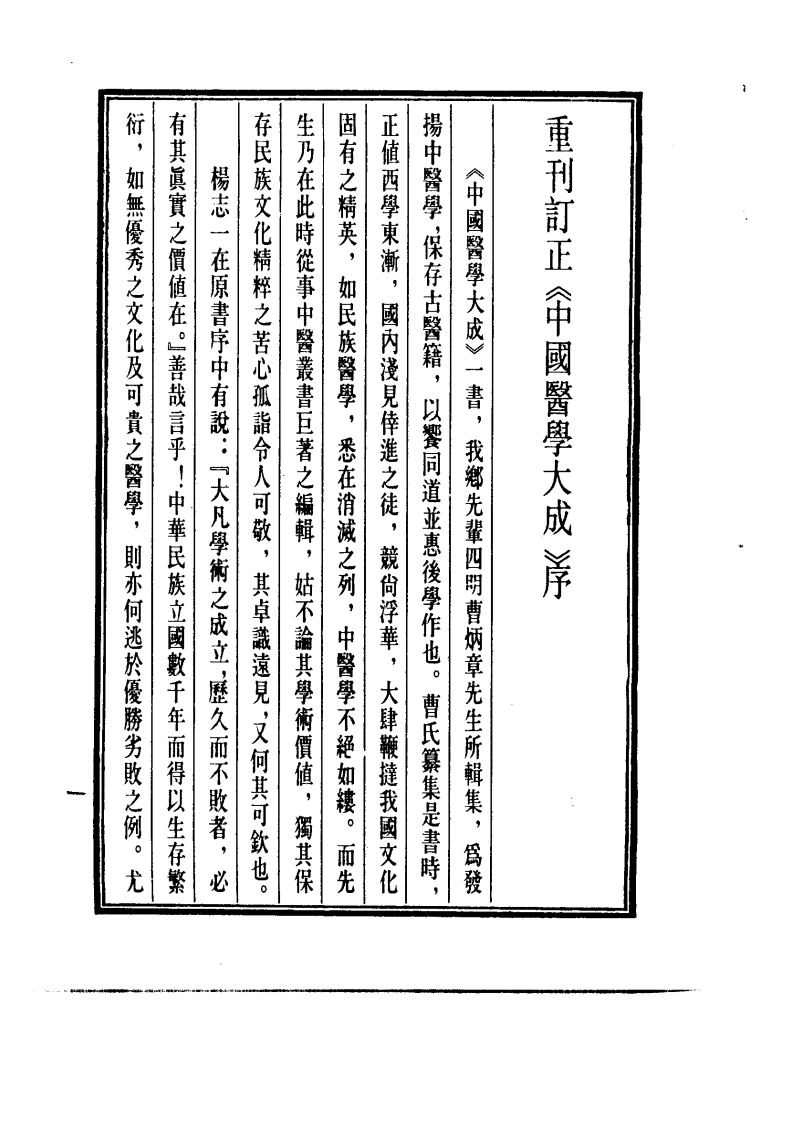 重刊訂正《中國醫學大成》序
《中國醫學大成》一書，我鄉先輩四明曹炳章先生所輯集，爲發
揚中醫學，保存古醫籍，以饗同道並惠後學作也。曹氏纂集是書時，
正値西學東漸，國內淺見倖進之徒，競尙浮華，大肆鞭撻我國文化
固有之精英，如民族醫學，悉在消滅之列，中醫學不絕如縷。而先
生乃在此時從事中醫叢書巨著之編輯，姑不論其學術價値，獨其保
存民族文化精粹之苦心孤詣令人可敬，其卓識遠見，又何其可欽也。
楊志一在原書序中有說：『大凡學術之成立，歷久而不敗者，必
有其眞實之價値在。』善哉言乎！中華民族立國數千年而得以生存繁
衍，如無優秀之文化及可貴之醫學，則亦何逃於優勝劣敗之例。尤
一